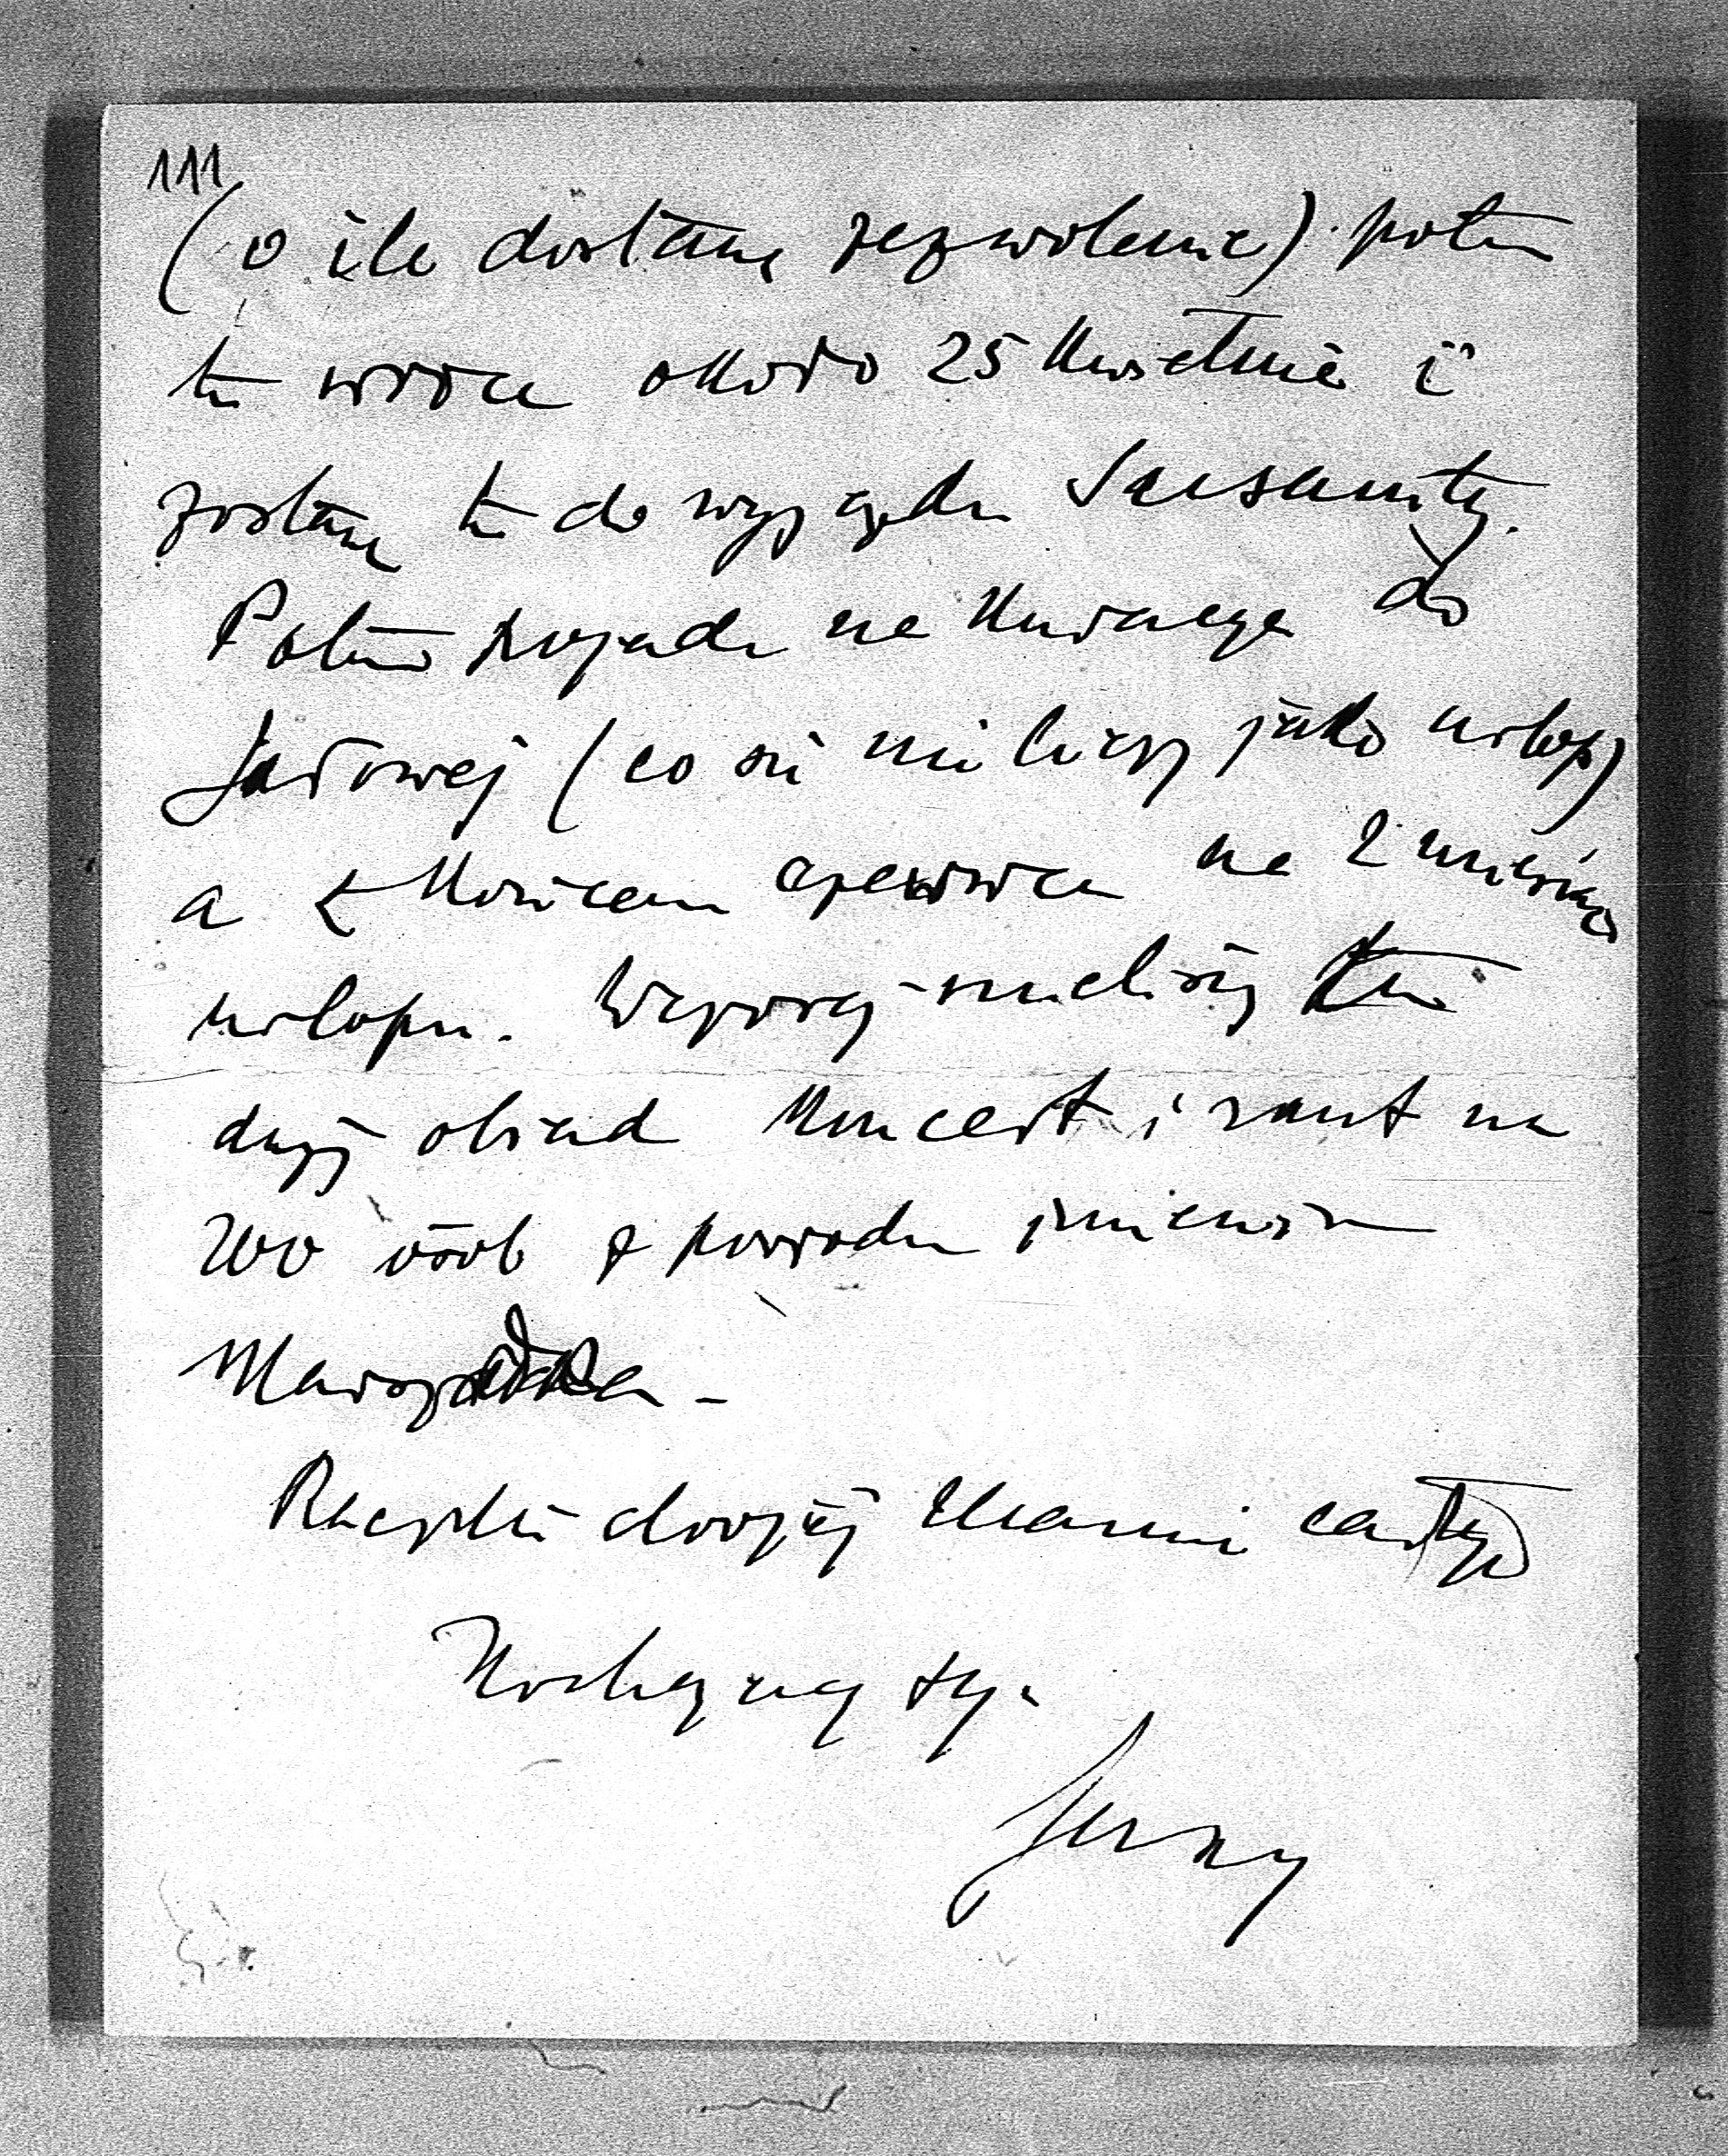 111
(o ile dostanę zezwolenie) potem
tu wrócę około 25 kwietnia i
zostanę tu do wyjazdu
Potem pojadę na kuracyę do
(co się mi liczy jako urlop)
a z końcem czerwca na 2 miesiące
urlopu. Wczoraj mieliśmy tu
duży obiad koncert i raut na
200 osób z powodu imienin
Marszałka -
Rączki drogiej Mami całuję
Kochający syn
Jerzy